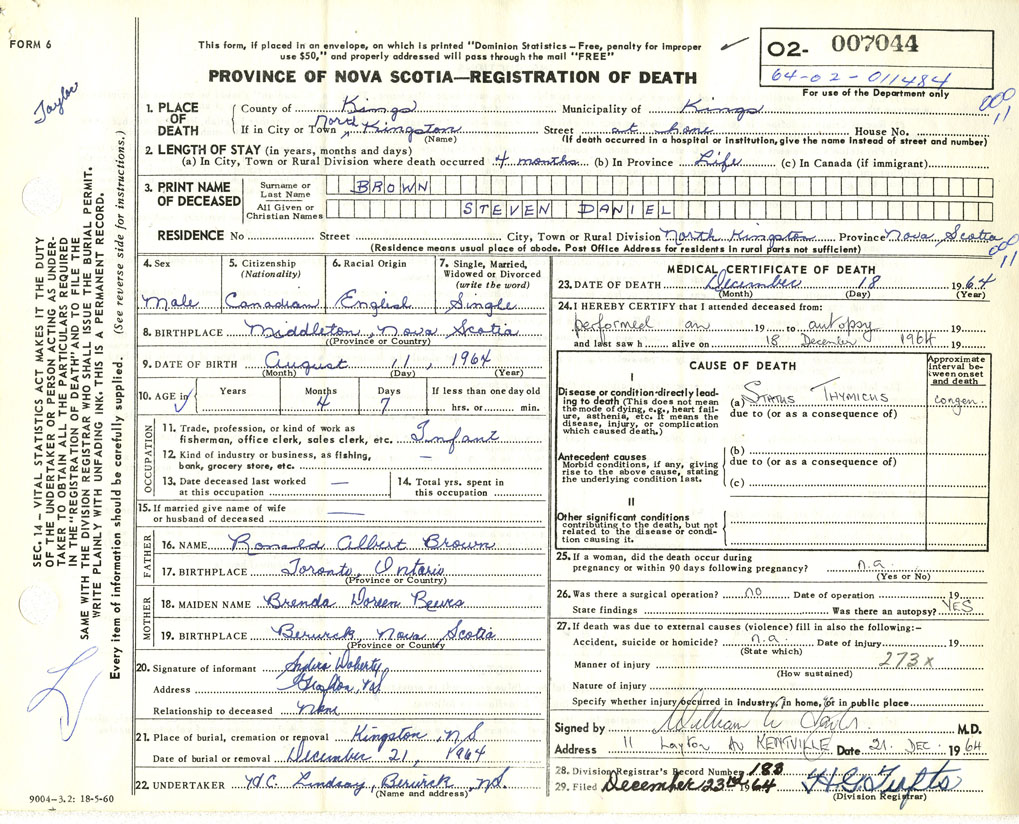 FORM 6
This form, if placed in an envelope, on which is printed "Dominion Statistics – Free, penalty for improper
use $50," and properly addressed will pass through the mail "FREE"
PROVINCE OF NOVA SCOTIA—REGISTRATION OF DEATH
02- 007044
64-02-011484
For use of the Department only
000
11
Taylor
1. PLACE OF DEATH
County of Kings Municipality of Kings
If in City or Town North Kingston Street at home House No.
(Name) (If death occurred in a hospital or institution, give the name instead of street and number)
2. LENGTH OF STAY (in years, months and days)
(a) In City, Town or Rural Division where death occurred 4 months (b) In Province Life (c) In Canada (if immigrant)
3. PRINT NAME OF DECEASED
Surname or Last Name BROWN
All Given or Christian Names STEVEN DANIEL
RESIDENCE No Street City, Town or Rural Division North Kingston Province Nova Scotia
(Residence means usual place of abode. Post Office Address for residents in rural parts not sufficient)
000
11
4. Sex
Male
5. Citizenship
(Nationality)
Canadian
6. Racial Origin
English
7. Single, Married,
Widowed or Divorced
(write the word)
Single
8. BIRTHPLACE Middleton, Nova Scotia
((Province or Country)
9. DATE OF BIRTH August 11, 1964
(Month) (Day) (Year)
10. AGE in Years Months 4 Days 7 If less than one day old
hrs. or min.
OCCUPATION
11. Trade, profession, or kind of work as
fisherman, office clerk, sales clerk, etc. Infant
12. Kind of industry or business, as fishing,
bank, grocery store, etc. —
13. Date deceased last worked
at this occupation —
14. Total yrs. spent in
this occupation
15. If married give name of wife
or husband of deceased —
FATHER
16. NAME Ronald Albert Brown
17. BIRTHPLACE Toronto, Ontario
(Province or Country)
MOTHER
18. MAIDEN NAME Brenda Doreen
19. BIRTHPLACE Berwick, Nova Scotia
(Province or Country
20. Signature of informant
Address
Relationship to deceased None
21. Place of burial, cremation or removal Kingston, N.S
Date of burial or removal December 21, 1964
22. UNDERTAKER H.C. Lindsay, Berwick, N.S.
(Name and address)
9004—3.2: 18-5-60
MEDICAL CERTIFICATE OF DEATH
23. DATE OF DEATH December 18 1964
(Month) (Day) (Year)
24. I HEREBY CERTIFY that I attended deceased from:
performed an 19 to autopsy 19
and last saw h alive on 18 December 1964 19
CAUSE OF DEATH
Approximate
interval be-
tween onset
and death
I
Disease or condition directly lead-
ing to death (This does not mean
the mode of dying, e.g., heart fail-
ure, asthenia, etc. It means the
disease, injury, or complication
which caused death.)
(a) STATUS THYMICUS congen.
due to (or as a consequence of)
Antecedent causes
Morbid conditions, if any, giving
rise to the above cause, stating
the underlying condition last.
(b)
due to (or as a consequence of)
(c)
II
Other significant conditions
contributing to the death, but not
related to the disease or condi-
tion causing it.
25. If a woman, did the death occur during
pregnancy or within 90 days following pregnancy? n.a.
(Yes or No)
26. Was there a surgical operation? no Date of operation 19
State findings Was there an autopsy? YES
27. If death was due to external causes (violence) fill in also the following:-
Accident, suicide or homicide? n.a. Date of injury 19
(State which)
Manner of injury 273x
(How sustained)
Nature of injury
Specify whether injury occurred in industry, in home, or in public place
Signed by William M.D.
Address 11 Layton Av KENTVILLE Date 21 DEC. 1964
28. Division Registrar's Record Number 188
29. Filed December 23rd 1964 H.G. Tufts
(Division Registrar)
SEC. 14 – VITAL STATISTICS ACT MAKES IT THE DUTY
OF THE UNDERTAKER OR PERSON ACTING AS UNDER-
TAKER TO OBTAIN ALL THE PARTICULARS REQUIRED
IN THE "REGISTRATION OF DEATH" AND TO FILE THE
SAME WITH THE DIVISION REGISTRAR WHO SHALL ISSUE THE BURIAL PERMIT.
WRITE PLAINLY WITH UNFADING INK. THIS IS A PERMANENT RECORD.
Every item of information should be carefully supplied. (See reverse side for instructions.)